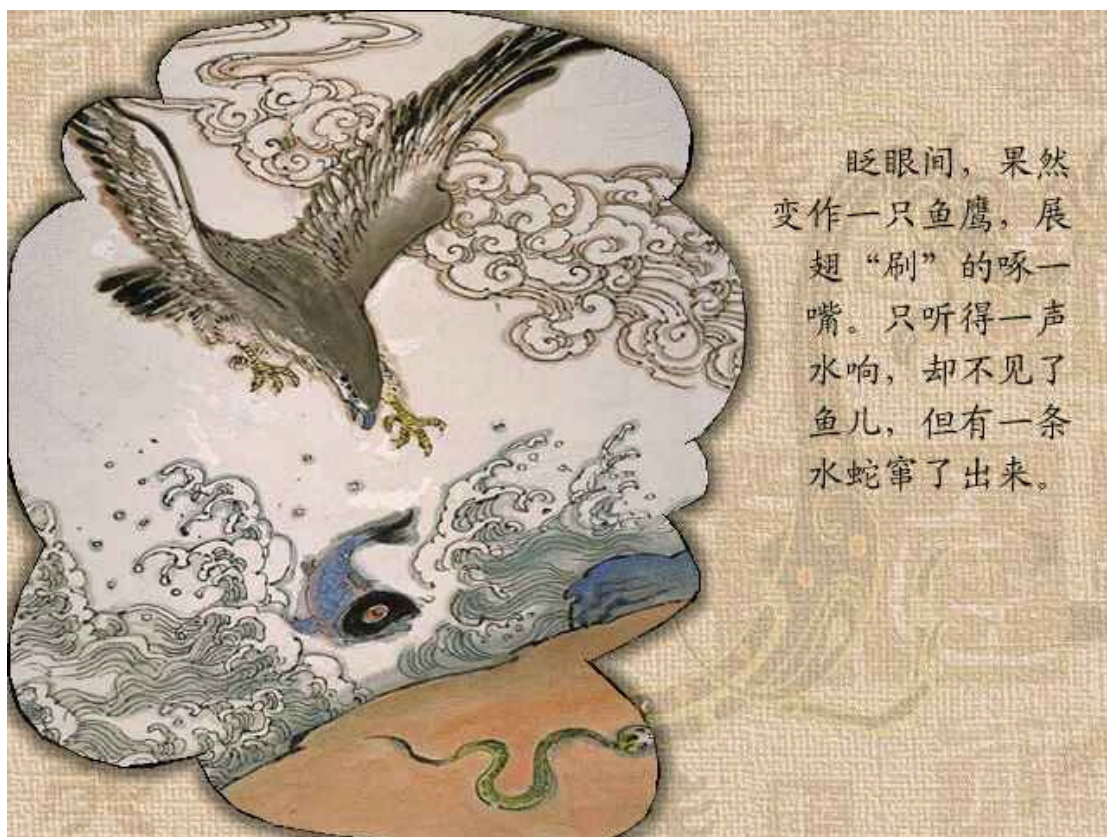 眨眼间，果然
变作一只鱼鹰，展
翅“刷”的啄一
嘴。只听得一声
水响，却不见了
鱼儿，但有一条
水蛇窜了出来。